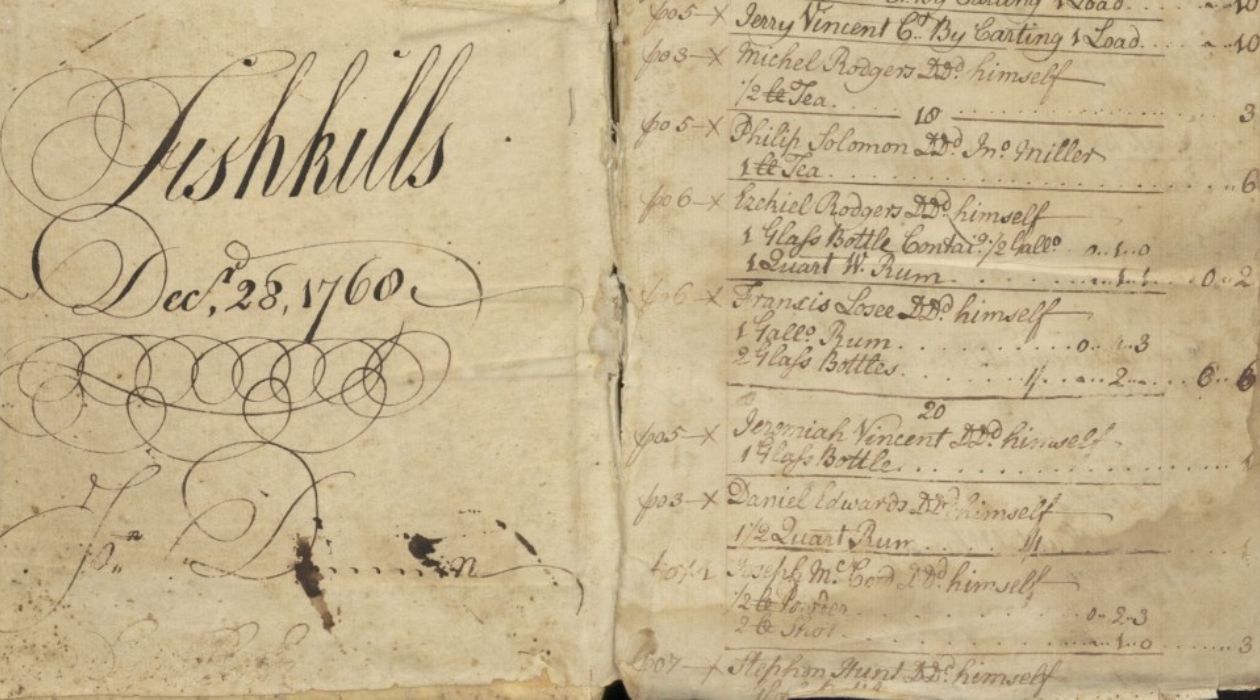 Fishkills
Decr. 28, 1760.
Jon D n
Ct. By Carting 1 Load 10
fo 5 -X Jerry Vincent Ct. By Carting 1 Load 10
fo 3 -X Michel Rodgers DDd. himself
1/2 lb Tea 3
18
fo 5 -X Philip Solomon DDd. Jno. Miller
1 lb Tea 6
fo 6 -X Ezekiel Rodgers DDd. himself
1 Glass Bottle Contai.g. 1/2 Gallo. 0..1..0
1 Quart W. Rum 1..1 0..2
fo 6 -X Francis Losee DDd. himself
1 Gallo. Rum 0..1..3
2 Glass Bottles 1/ 2 6
20
fo 5 -X Jeremiah Vincent DDd. himself
1 Glass Bottle 1
fo 3 -X Daniel Edwards DDd. himself
1 1/2 Quart Rum 1/
Joseph Mc.Cord DDd. himself
1/2 lb Powder 0..2..3
2 lb Shot 1..0 3
fo 7 -X Stephen Hunt DDd. himself